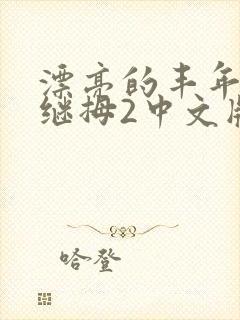 漂亮的丰年
继拇2中文版
哈登